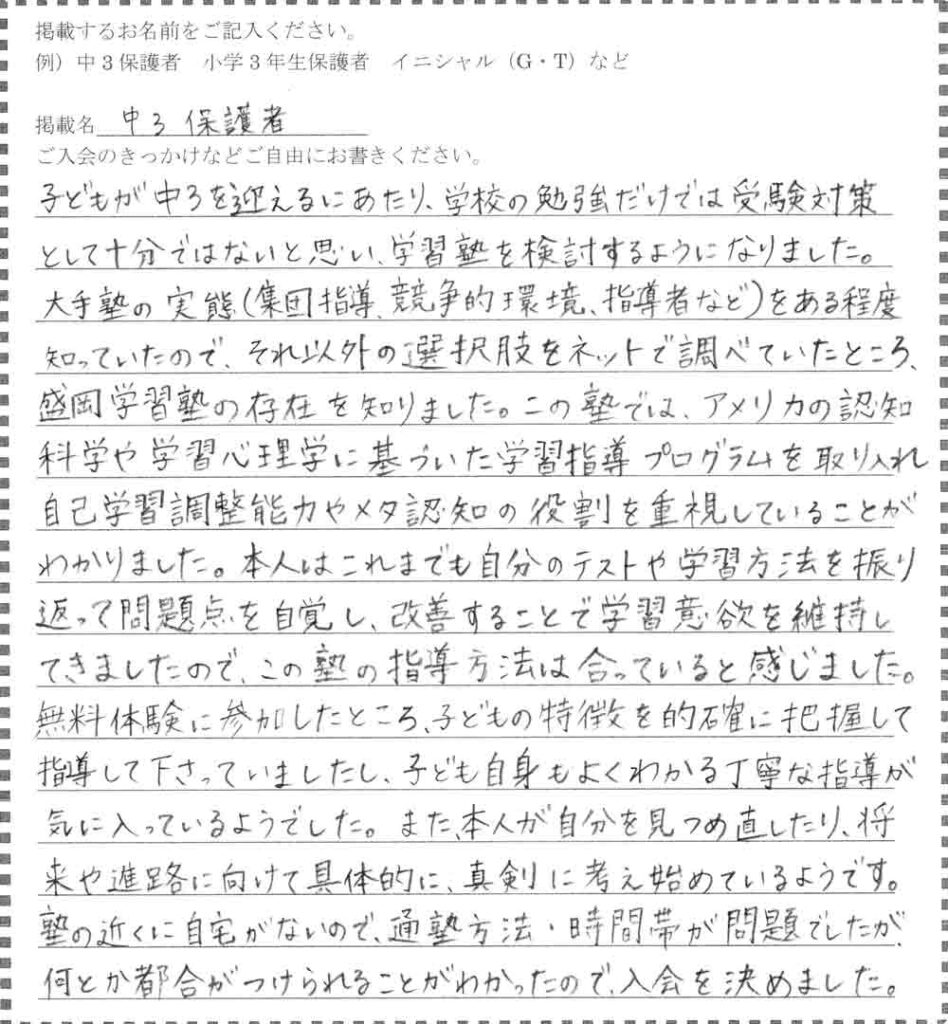 掲載するお名前をご記入ください。
例）中3保護者　小学3年生保護者　イニシャル（G・T）など
掲載名　中3 保護者
ご入会のきっかけなどご自由にお書きください。
子どもが中3を迎えるにあたり、学校の勉強だけでは受験対策
として十分ではないと思い、学習塾を検討するようになりました。
大手塾の実態(集団指導、競争的環境、指導者など)をある程度
知っていたので、それ以外の選択肢をネットで調べていたところ、
盛岡学習塾の存在を知りました。この塾では、アメリカの認知
科学や学習心理学に基づいた学習指導プログラムを取り入れ
自己学習調整能力やメタ認知の役割を重視していることが
わかりました。本人はこれまでも自分のテストや学習方法を振り
返って問題点を自覚し、改善することで学習意欲を維持し
てきましたので、この塾の指導方法は合っていると感じました。
無料体験に参加したところ、子どもの特徴を的確に把握して
指導して下さっていましたし、子ども自身もよくわかる丁寧な指導が
気に入っているようでした。また、本人が自分を見つめ直したり、将
来や進路に向けて具体的に、真剣に考え始めているようです。
塾の近くに自宅がないので、通塾方法・時間帯が問題でしたが、
何とか都合がつけられることがわかったので、入会を決めました。